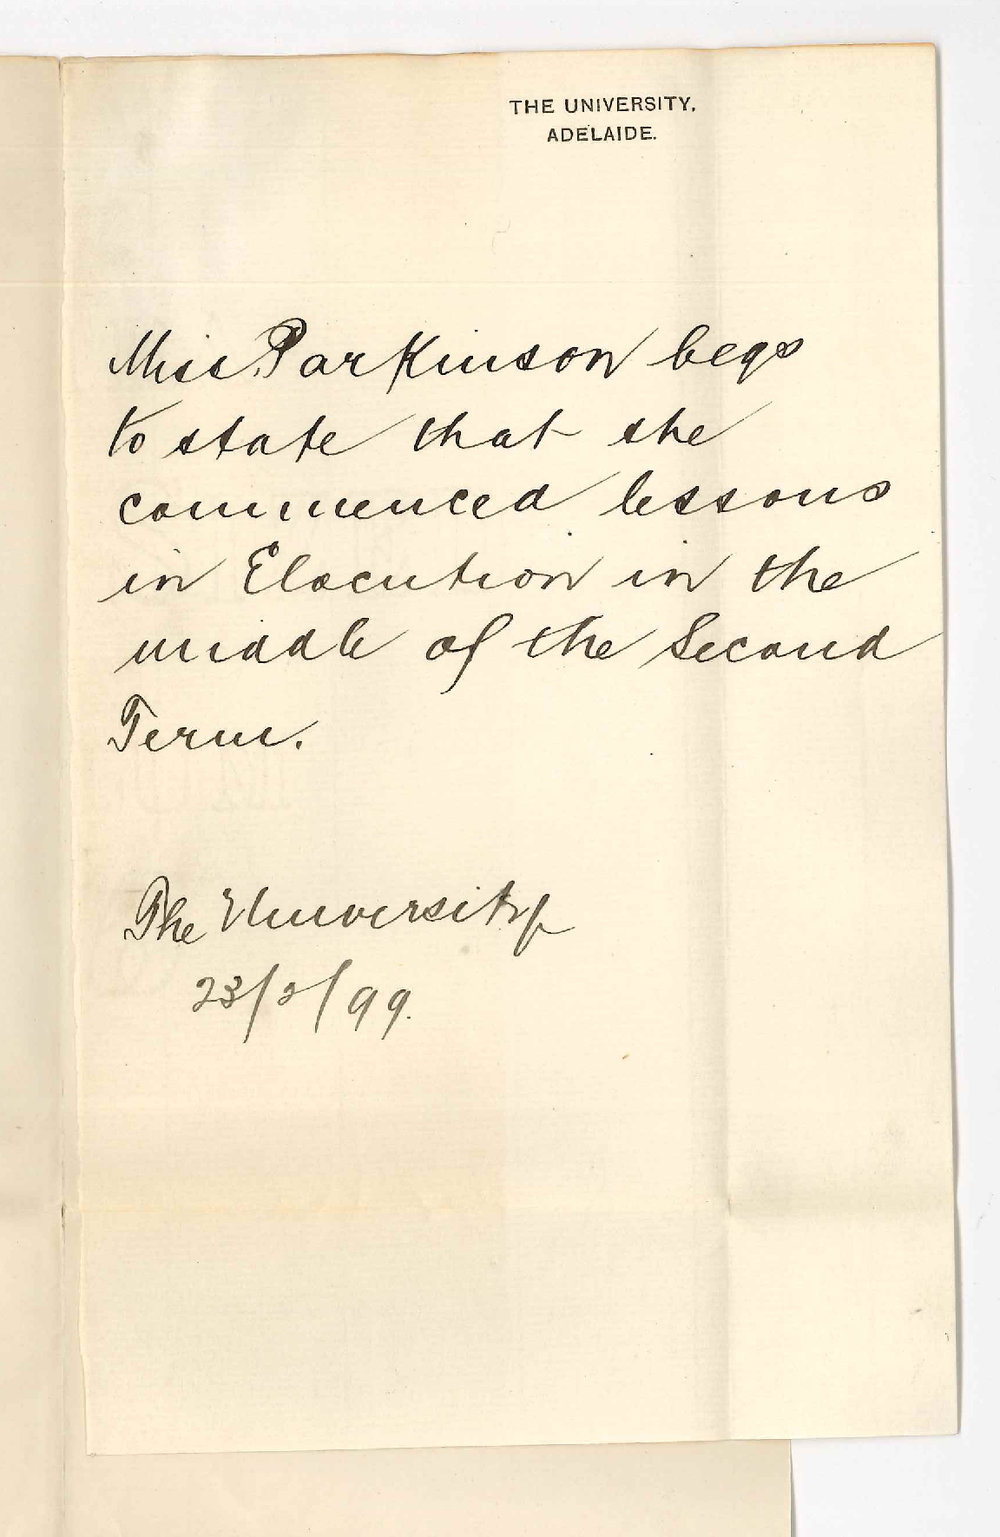 THE UNIVERSITY.
ADELAIDE.
Miss Parkinson begs
to state that she
commenced lessons
in Elocution in the
middle of the Second
Term.
The University
23/2/99.